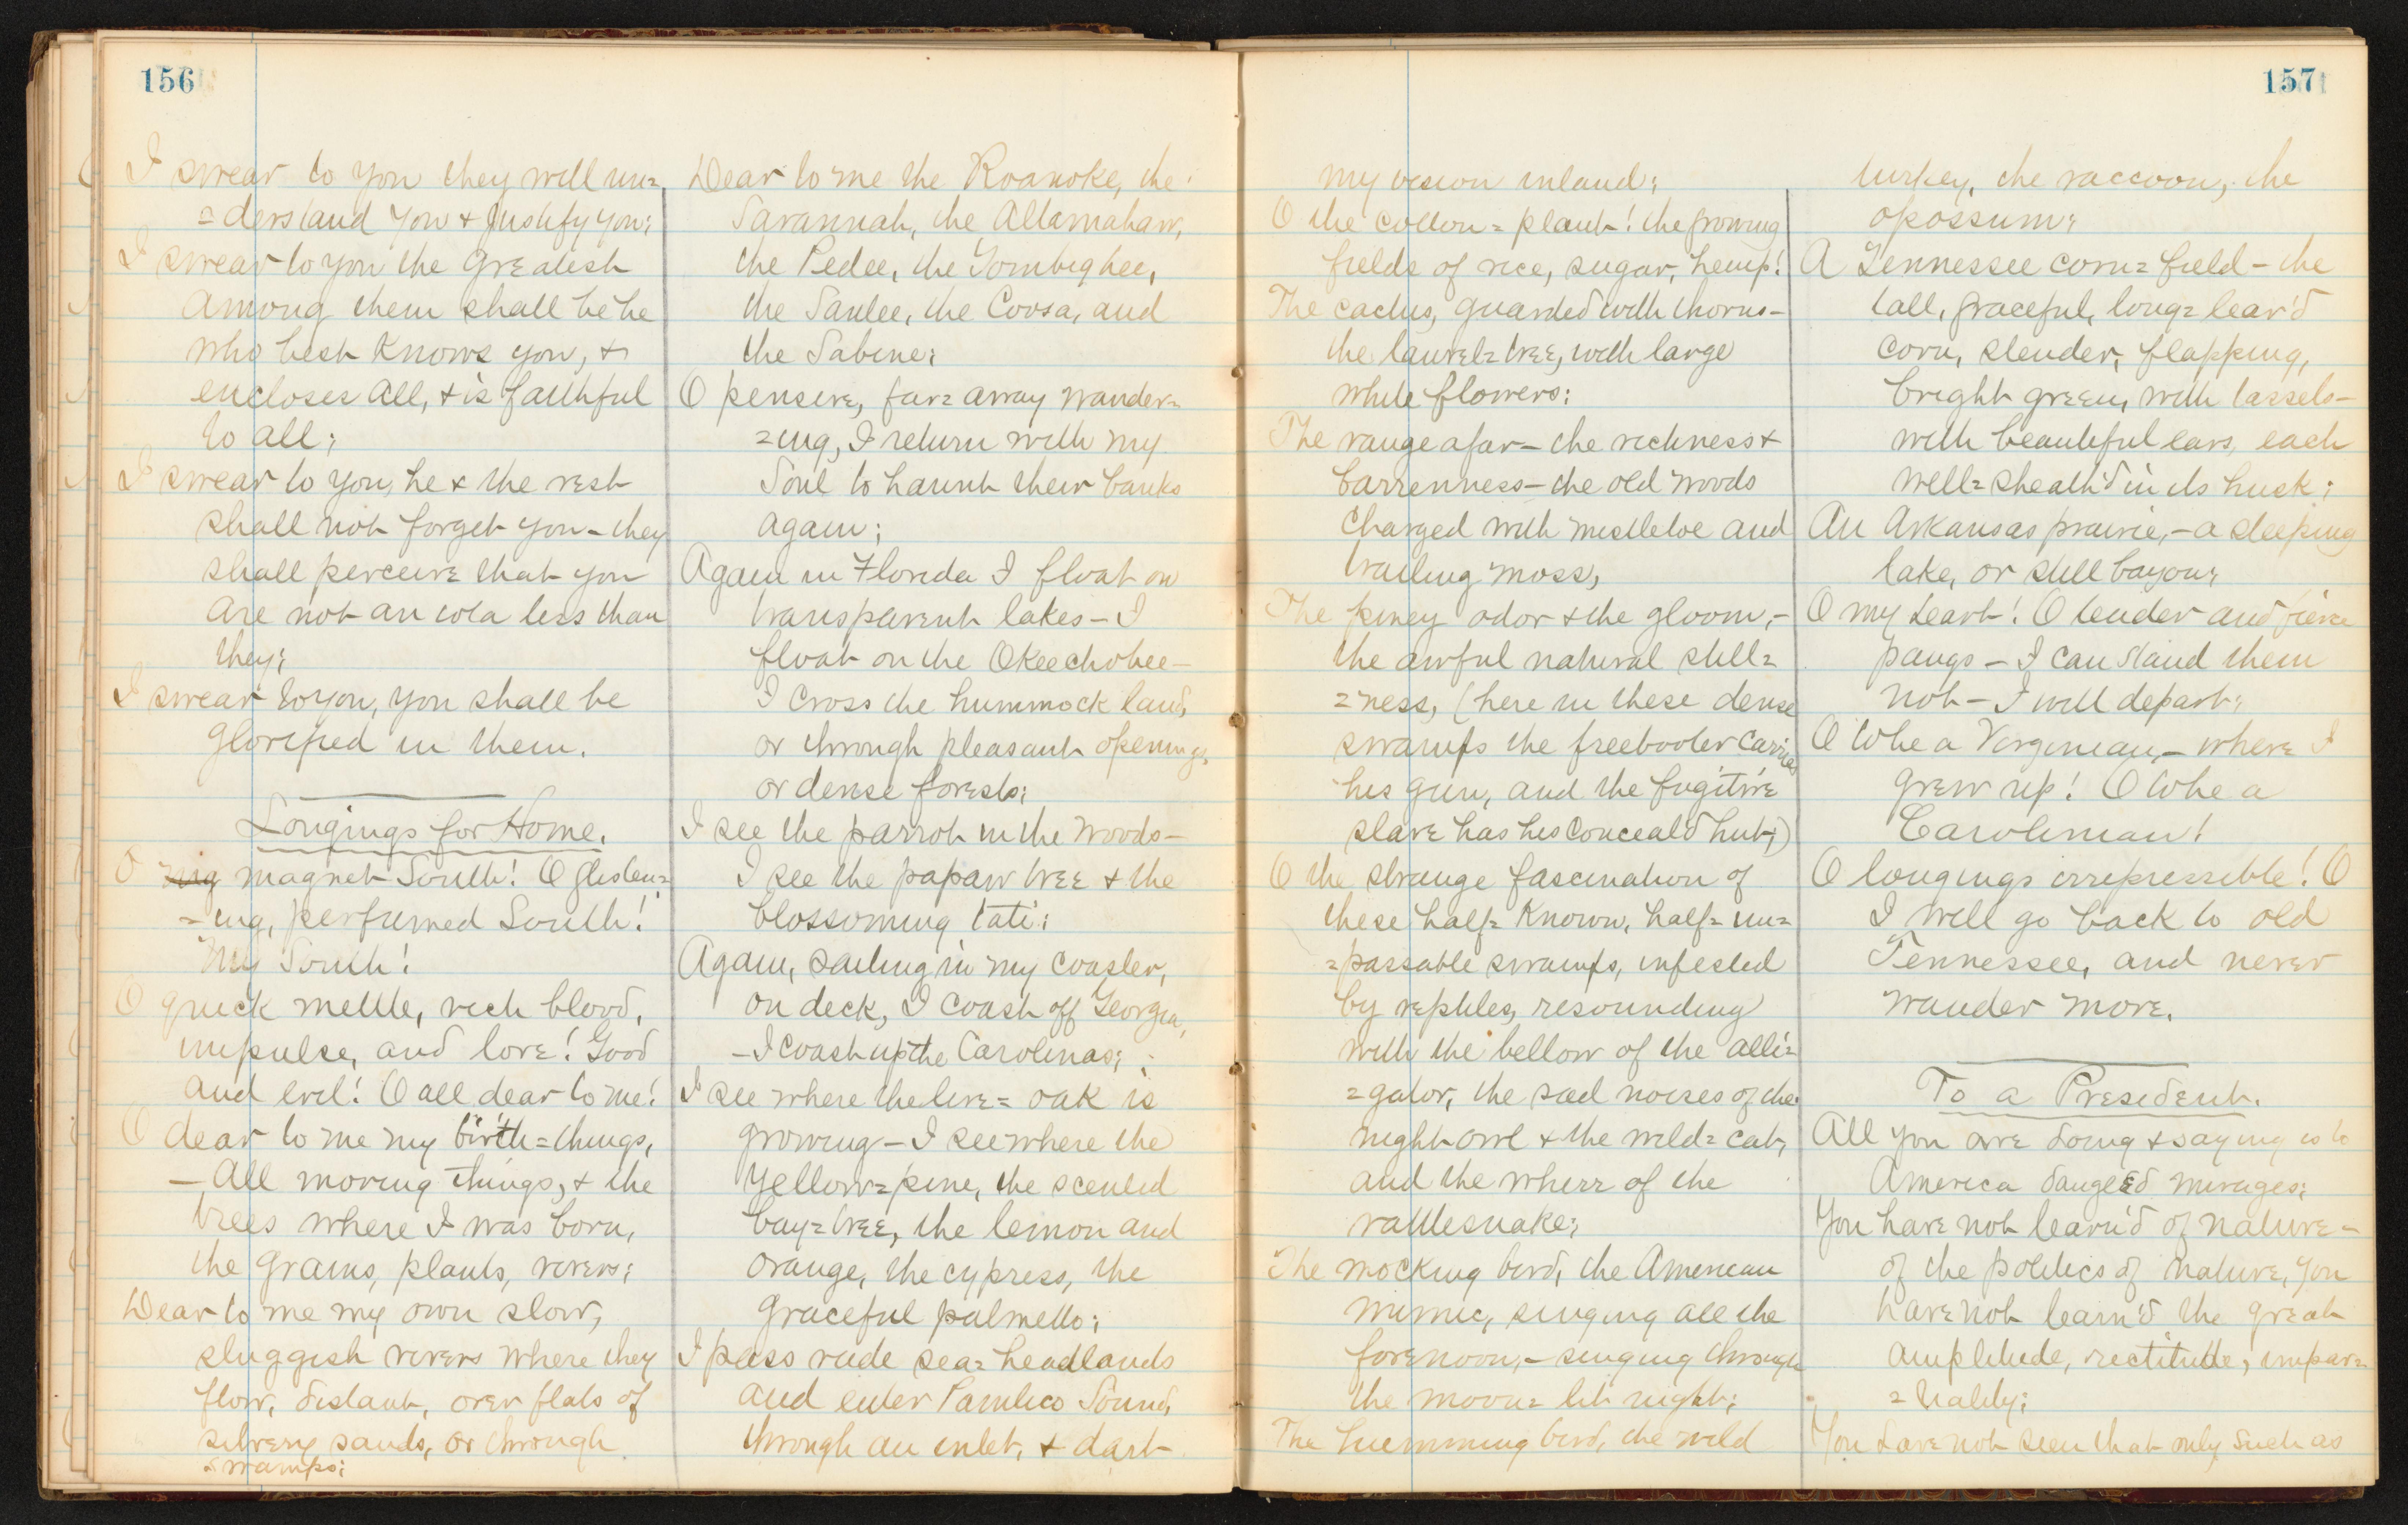 156
I swear to you they will un=
=derstand you & justify you;
I swear to you the greatest
among them shall be he
who best knows you, &
encloses all, & is faithful
to all;
I swear to you, he & the rest
shall not forget you - they
shall perceive that you
are not an iota less than
they;
I swear to you, you shall be
glorified in them.
Longings for Home.
O magnet South! O glisten=
=ing, perfumed South!
My South!
O quick mettle, rich blood,
impulse, and love! Good
and evil! O all dear to me!
O dear to me my birth=things,
- All moving things, & the
trees where I was born,
the grains, plants, rivers;
Dear to me my own slow,
sluggish rivers where they
flow, distant, over flats of
silvery sands, or through
swamps;
Dear to me the Roanoke, the
Savannah, the Altamahaw,
the Pedee, the Tombigbee,
the Santee, the Coosa, and
the Sabine;
O pensive, far=away wander=
=ing, I return with my
Soul to haunt their banks
again;
Again in Florida I float on
transparent lakes - I
float on the Okeechobee -
I cross the hummock land,
or through pleasant openings,
or dense forests;
I see the parrot in the woods -
I see the papaw tree & the
blossoming tati;
Again, sailing in my coaster,
on deck, I coast off Georgia,
- I coast up the Carolinas;
I see where the live=oak is
growing - I see where the
yellow=pine, the scented
bay=tree, the lemon and
orange, the cypress, the
graceful palmetto;
I pass rude sea=headlands
and enter Pamlico Sound,
through an inlet, & dart
157
my vision inland;
O the cotton=plant! the growing
fields of rice, sugar, hemp!
The cactus, guarded with thorns -
the laurel=tree, with large
white flowers;
The range afar - the richness &
barrenness - the old woods
charged with mistletoe and
trailing moss,
The piney odor & the gloom, -
the awful natural still=
=ness, (here in these dense
swamps the freebooter carries
his gun, and the fugitive
slave has his conceal'd hut;)
O the strange fascination of
these half=known, half=un=
=passable swamps, infested
by reptiles, resounding
with the bellow of the alli=
=gator, the sad noises of the
night-owl & the wild=cat,
and the whirr of the
rattlesnake;
The mocking bird, the American
mimic, singing all the
forenoon, - singing through
the moon=lit night;
The humming bird, the wild
turkey, the raccoon, the
opossum;
A Tennessee corn=field - the
tall, graceful, long=leav'd
corn, slender, flapping,
bright green, with tassels -
with beautiful ears, each
well=sheath'd in its husk;
An Arkansas prairie, - a sleeping
lake, or still bayou;
O my heart! O tender and fierce
pangs - I can stand them
not - I will depart;
O to be a Virginian, - where I
grew up! O to be a
Carolinian!
O longings irrepressible! O
I will go back to old
Tennessee, and never
wander more.
To a President.
All you are doing & saying is to
America dangled mirages;
You have not learn'd of nature -
of the politics of nature, you
have not learn'd the great
amplitude, rectitude, impar=
=tiality;
You have not seen that only such as